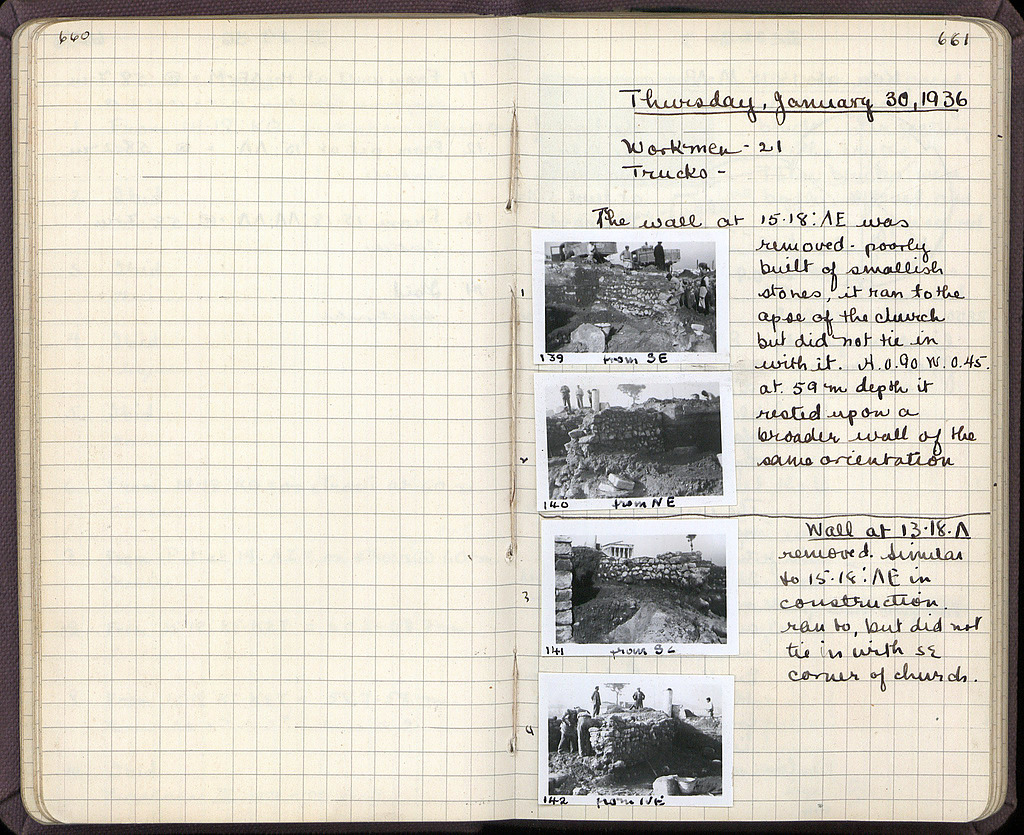 660
661
Thursday, January 30, 1936
Workmen - 21
Trucks -
The wall at 15·18:ΛΕ was
removed - poorly
built of smallish
stones, it ran to the
apse of the church
but did not tie in
with it. H. 0.90 W. 0.45.
at 59 m depth it
rested upon a
broader wall of the
same orientation
1
139 from SE
2
140 from NE
Wall at 13·18·Λ
removed. Similar
to 15·18:ΛΕ in
construction.
ran to, but did not
tie in with SE
corner of church.
3
141 from SE
4
142 from NE